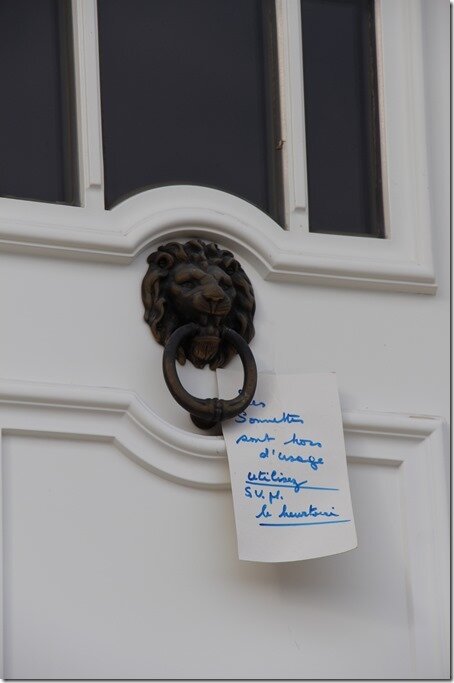 Les
Sonnettes
sont hors
d'usage
utilisez
S.V.P.
le heurtoir